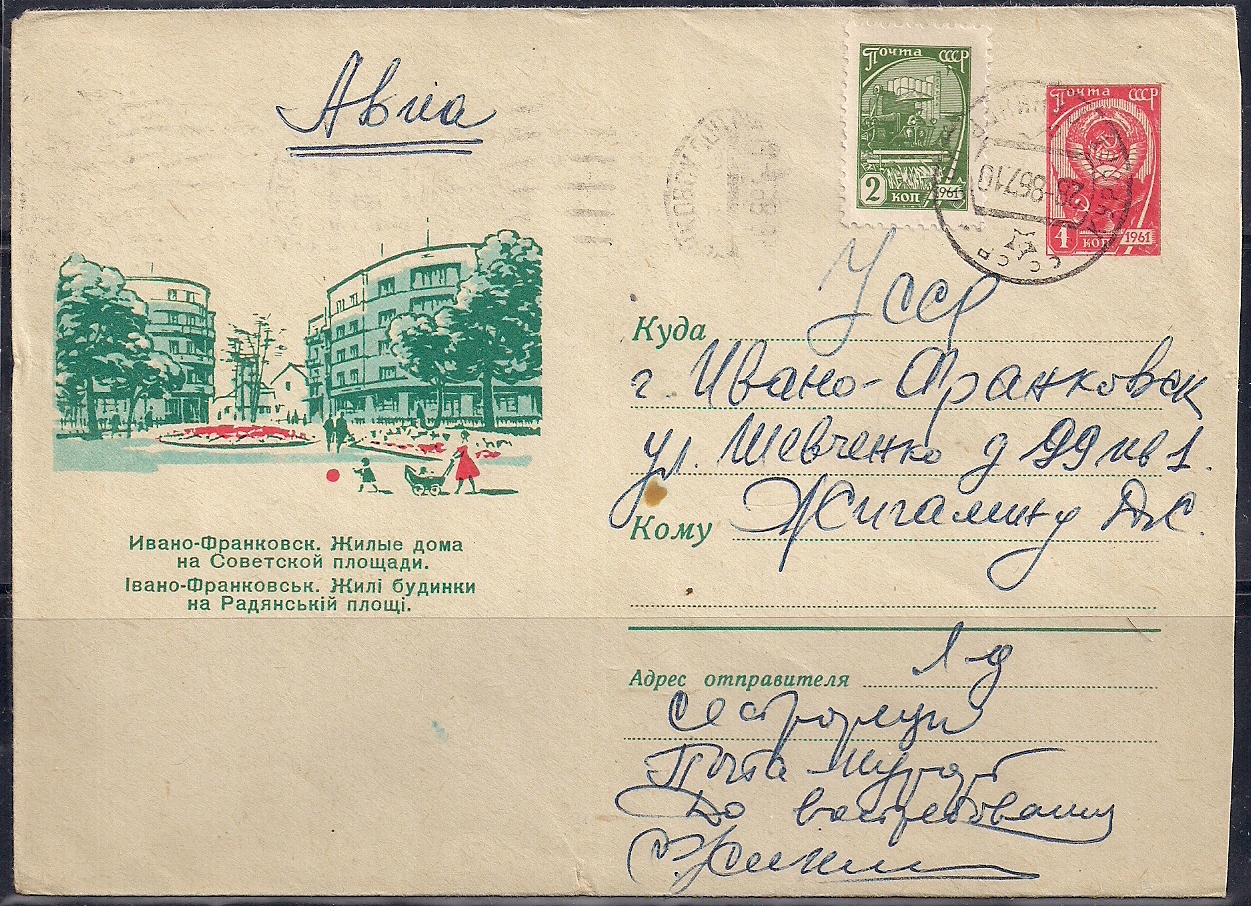 Авіа
Почта СССР
2 коп 1961
Почта СССР
4 коп 1961
СССР
УССР
Куда
г. Ивано-Франковск
ул. Шевченко д 99 кв 1.
Кому Жигалину Д.С.
Ивано-Франковск. Жилые дома
на Советской площади.
Івано-Франковськ. Жилі будинки
на Радянській площі.
Адрес отправителя Лд
Сестрорецк
Почта
До востребования